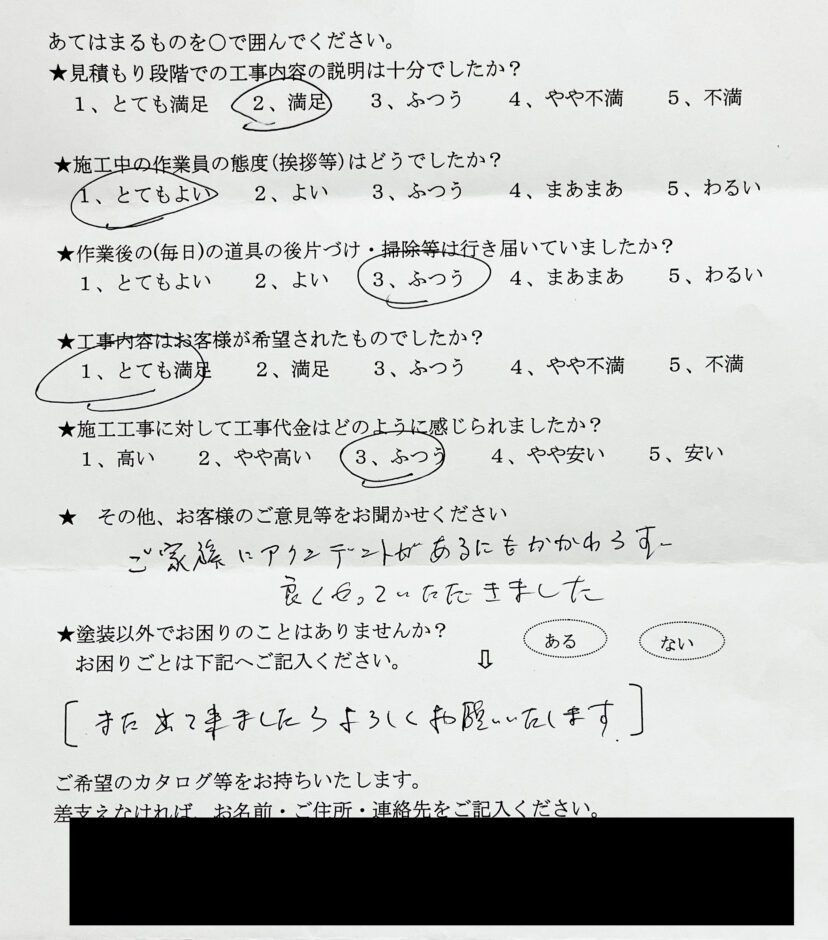 あてはまるものを○で囲んでください。
★見積もり段階での工事内容の説明は十分でしたか？
１、とても満足　２、満足　３、ふつう　４、やや不満　５、不満
★施工中の作業員の態度(挨拶等)はどうでしたか？
１、とてもよい　２、よい　３、ふつう　４、まあまあ　５、わるい
★作業後の(毎日)の道具の後片づけ・掃除等は行き届いていましたか？
１、とてもよい　２、よい　３、ふつう　４、まあまあ　５、わるい
★工事内容はお客様が希望されたものでしたか？
１、とても満足　２、満足　３、ふつう　４、やや不満　５、不満
★施工工事に対して工事代金はどのように感じられましたか？
１、高い　２、やや高い　３、ふつう　４、やや安い　５、安い
★　その他、お客様のご意見等をお聞かせください
ご家族にアクシデントがあるにもかかわらず
良くやっていただきました
★塗装以外でお困りのことはありませんか？　ある　ない
お困りごとは下記へご記入ください。　⇩
[また出て来ましたらよろしくお願いいたします.]
ご希望のカタログ等をお持ちいたします。
差支えなければ、お名前・ご住所・連絡先をご記入ください。